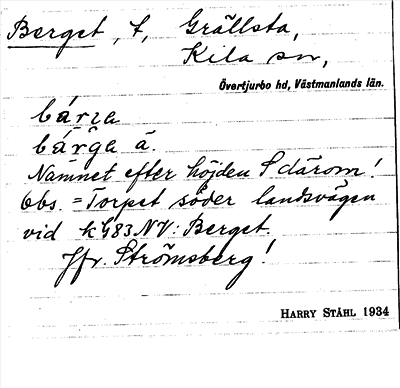 Berget, t, Grällsta,
Kila sn,
Övertjurbo hd, Västmanlands län.
bárɪa
bárga ä.
Namnet efter höjden S därom!
Obs. = Torpet söder landsvägen
vid k483NV: Berget.
Jfr. Strömsberg!
HARRY STÅHL 1934